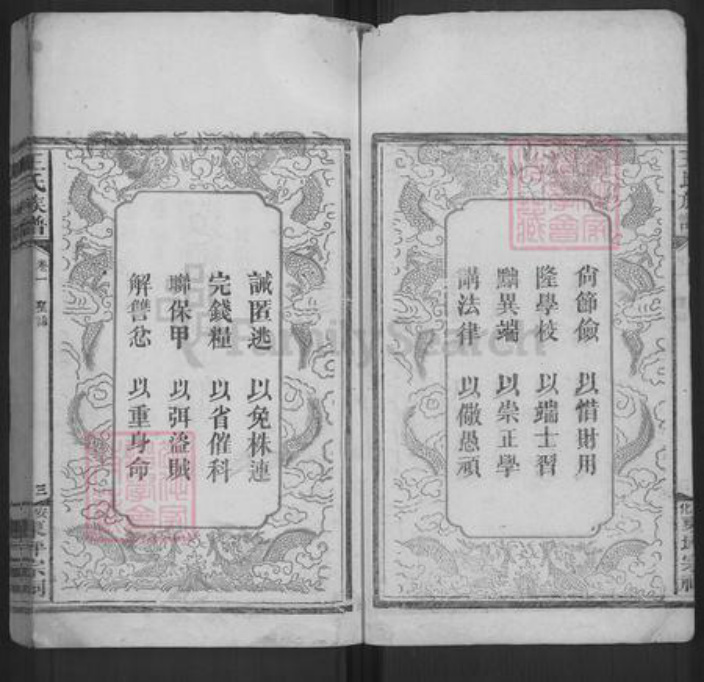 尙節儉 以惜財用
隆學校 以端士習
黜異端 以崇正學
講法律 以儆愚頑
誡匿逃 以免株連
完錢糧 以省催科
聯保甲 以弭盜賊
解讐忿 以重身命
王氏族譜
卷一
三
宗祠
FamilySearch